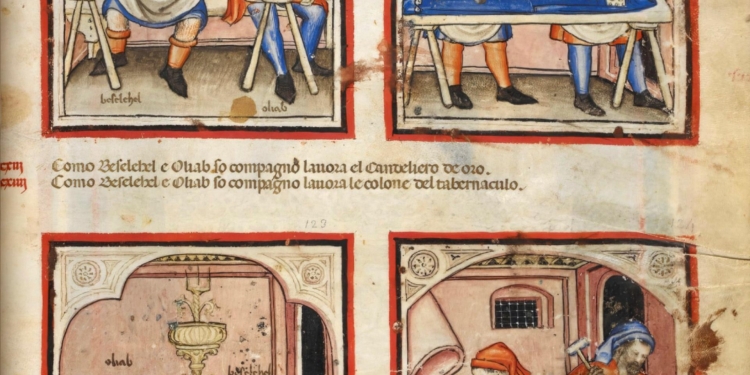 beselehel
oliab
cxiii Como Beselehel e Oliab so compagno lavora el Candeliero de oro.
cxiiii Como Beselehel e Oliab so compagno lavora le colone del tabernaculo.
129
oliab
beselehel